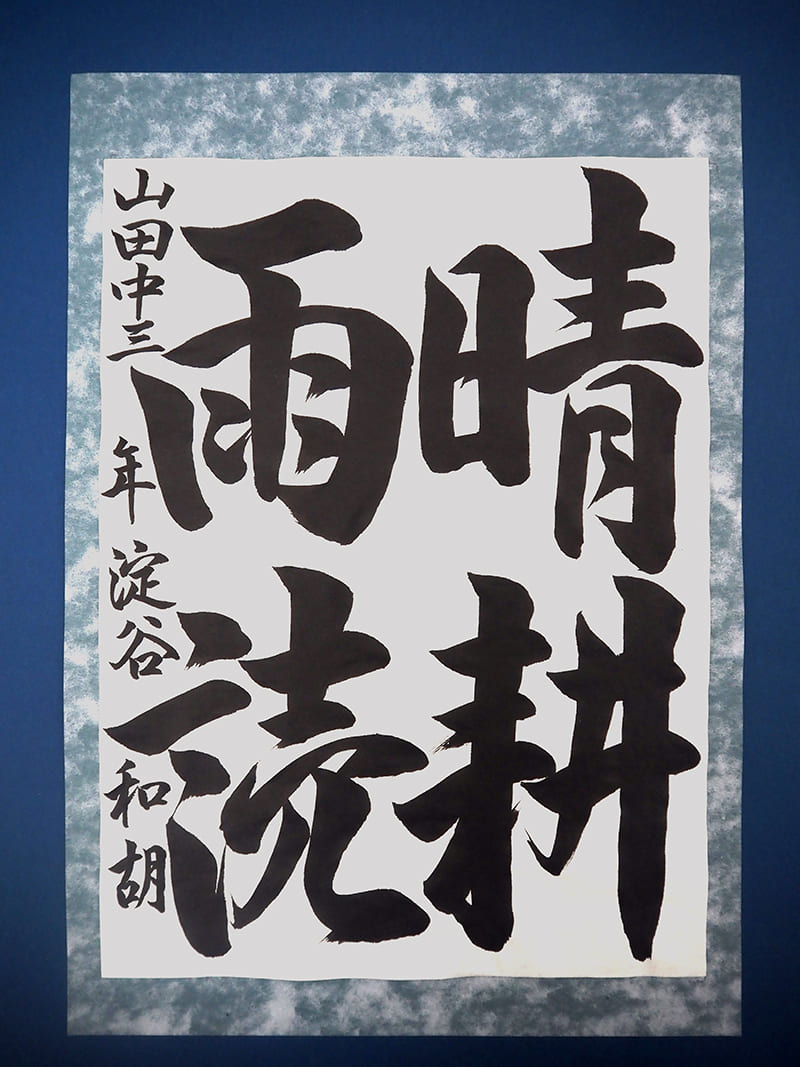 晴耕
雨読
山田中三年 淀谷和胡